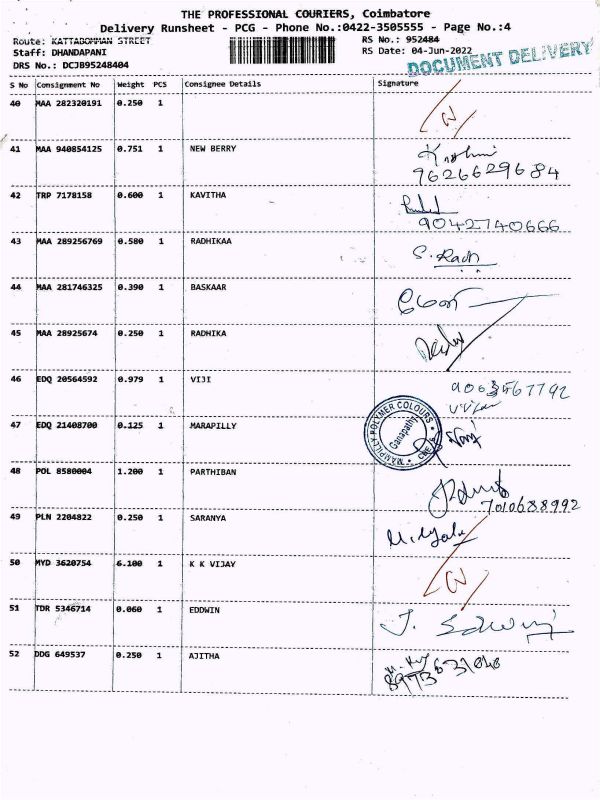 THE PROFESSIONAL COURIERS, Coimbatore
Delivery Runsheet - PCG - Phone No.:0422-3505555 - Page No.:4
Route: KATTABOMMAN STREET RS No.: 952484
Staff: DHANDAPANI RS Date: 04-Jun-2022
DRS No.: DCJB95248404 DOCUMENT DELIVERY
S No Consignment No Weight PCS Consignee Details Signature
40 MAA 282320191 0.250 1
41 MAA 940854125 0.751 1 NEW BERRY
9626629684
42 TRP 7178158 0.600 1 KAVITHA
9042740666
43 MAA 289256769 0.580 1 RADHIKAA S. Radh
44 MAA 281746325 0.390 1 BASKAAR
45 MAA 28925674 0.250 1 RADHIKA
46 EDQ 20564592 0.979 1 VIJI
47 EDQ 21408700 0.125 1 MARAPILLY
MAMPILLY POLYMER COLOURS
Ganapathy
CBE-6
48 POL 8580004 1.200 1 PARTHIBAN
7010688992
49 PLN 2204822 0.250 1 SARANYA
50 MYD 3620754 6.100 1 K K VIJAY
51 TDR 5346714 0.060 1 EDDWIN J. Edwin
52 DDG 649537 0.250 1 AJITHA